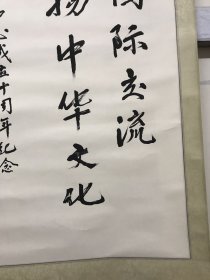 国际交流
扬中华文化
心成立十周年纪念